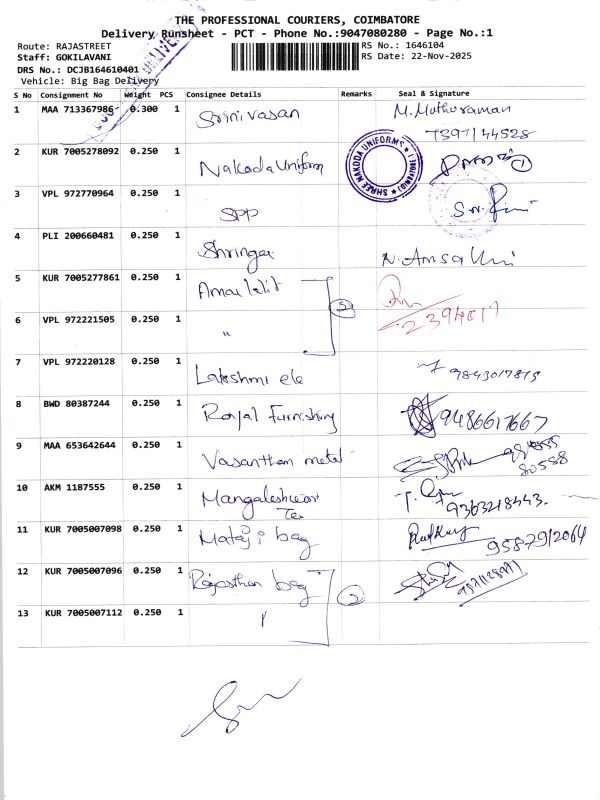 THE PROFESSIONAL COURIERS, COIMBATORE
Delivery Runsheet - PCT - Phone No.:9047080280 - Page No.:1
Route: RAJASTREET RS No.: 1646104
Staff: GOKILAVANI RS Date: 22-Nov-2025
DRS No.: DCJB164610401
Vehicle: Big Bag Delivery
S No Consignment No Weight PCS Consignee Details Remarks Seal & Signature
1 MAA 713367986 0.300 1 Srinivasan M. Muthuraman
7397144528
2 KUR 7005278092 0.250 1 Nakoda Uniform SHREE NAKODA UNIFORMS
3 VPL 972770964 0.250 1 SPP
4 PLI 200660481 0.250 1 Shringar
5 KUR 7005277861 0.250 1 Amar Lalit 2
6 VPL 972221505 0.250 1 "
7 VPL 972220128 0.250 1 Lakshmi ele 9843017813
8 BWD 80387244 0.250 1 Royal Furnishing 9486617667
9 MAA 653642644 0.250 1 Vasantham metal
80588
10 AKM 1187555 0.250 1 Mangaleshwari
Tex 9363218443.
11 KUR 7005007098 0.250 1 Mataji bag 9587912064
12 KUR 7005007096 0.250 1 Rajasthan bag 2
13 KUR 7005007112 0.250 1 "